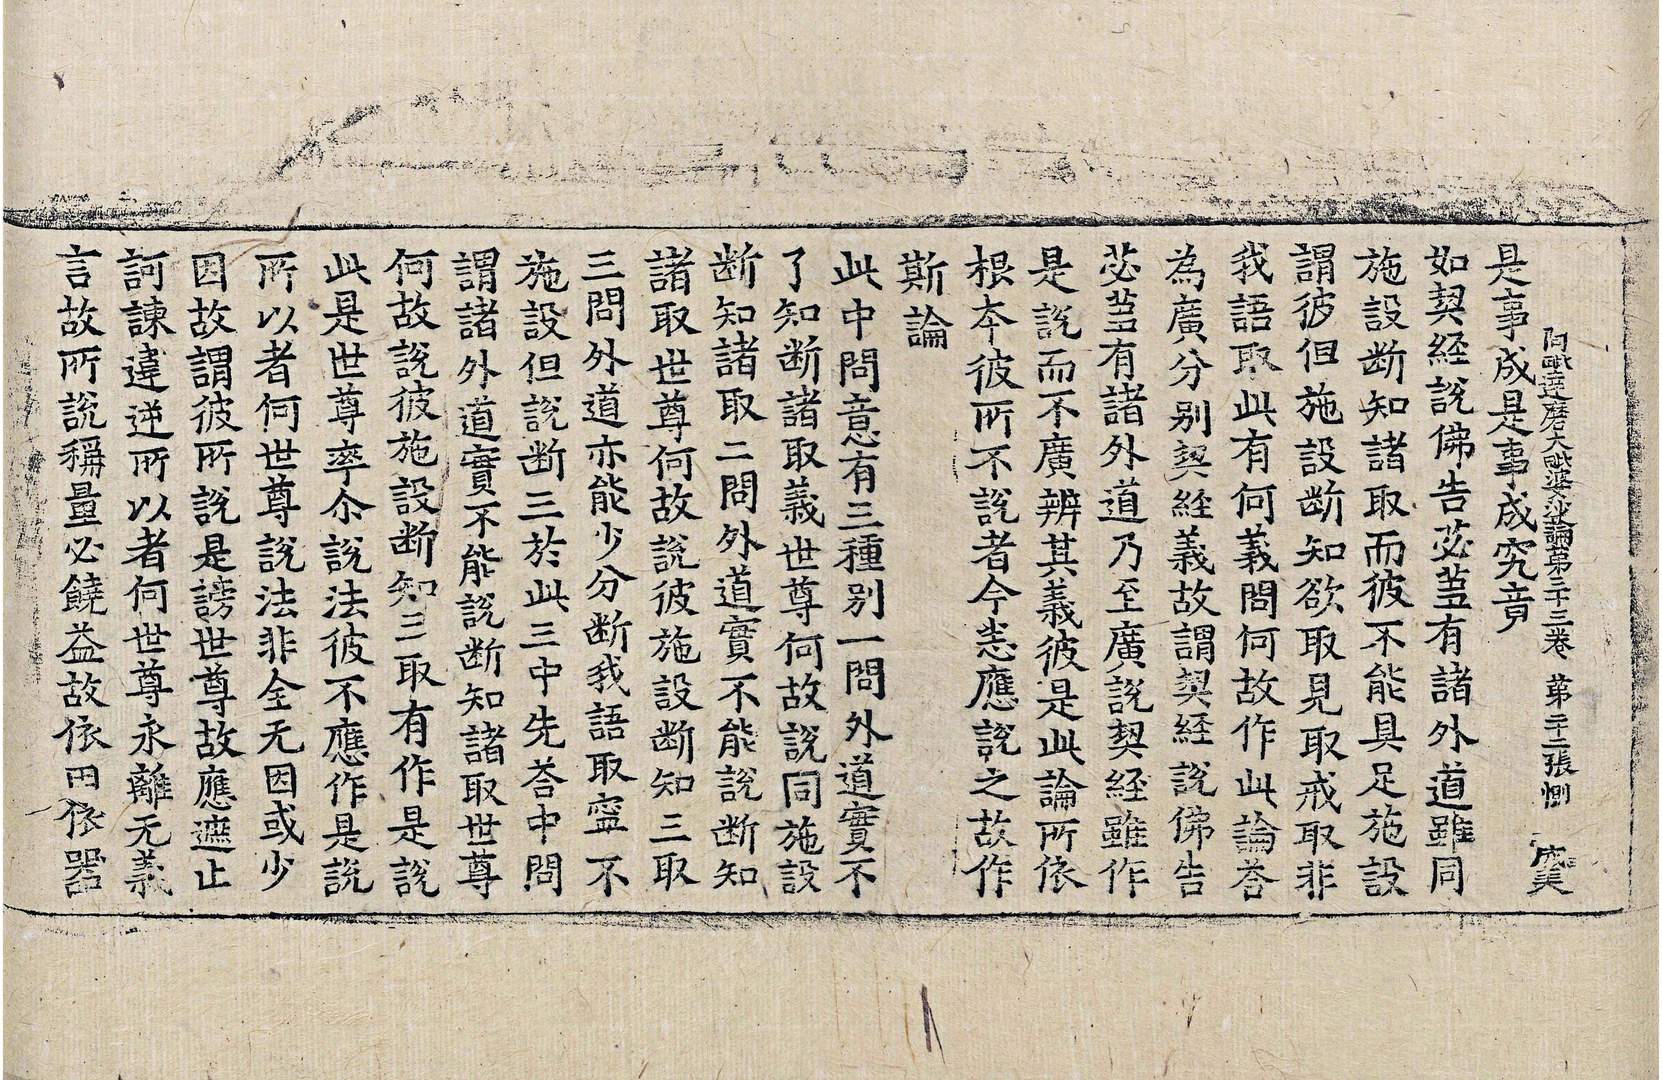 阿毗達磨大毗婆沙論第二十三卷 第二十二張 惻
是事成是事成究竟
如契経說佛告苾蒭有諸外道雖同
施設断知諸取而彼不能具足施設
謂彼但施設断知欲取見取戒取非
我語取此有何義問何故作此論荅
為廣分別契経義故謂契経說佛告
苾蒭有諸外道乃至廣說契経雖作
是說而不廣辨其義彼是此論所依
根本彼所不說者今悉應說之故作
斯論
此中問意有三種別一問外道實不
了知断諸取義世尊何故說同施設
断知諸取二問外道實不能說断知
諸取世尊何故說彼施設断知三取
三問外道亦能少分断我語取寧不
施設但說断三於此三中先荅中問
謂諸外道實不能說断知諸取世尊
何故說彼施設断知三取有作是說
此是世尊率尒說法彼不應作是說
所以者何世尊說法非全无因或少
因故謂彼所說是謗世尊故應遮止
訶諫違逆所以者何世尊永離无義
言故所說稱量必饒益故依田依器